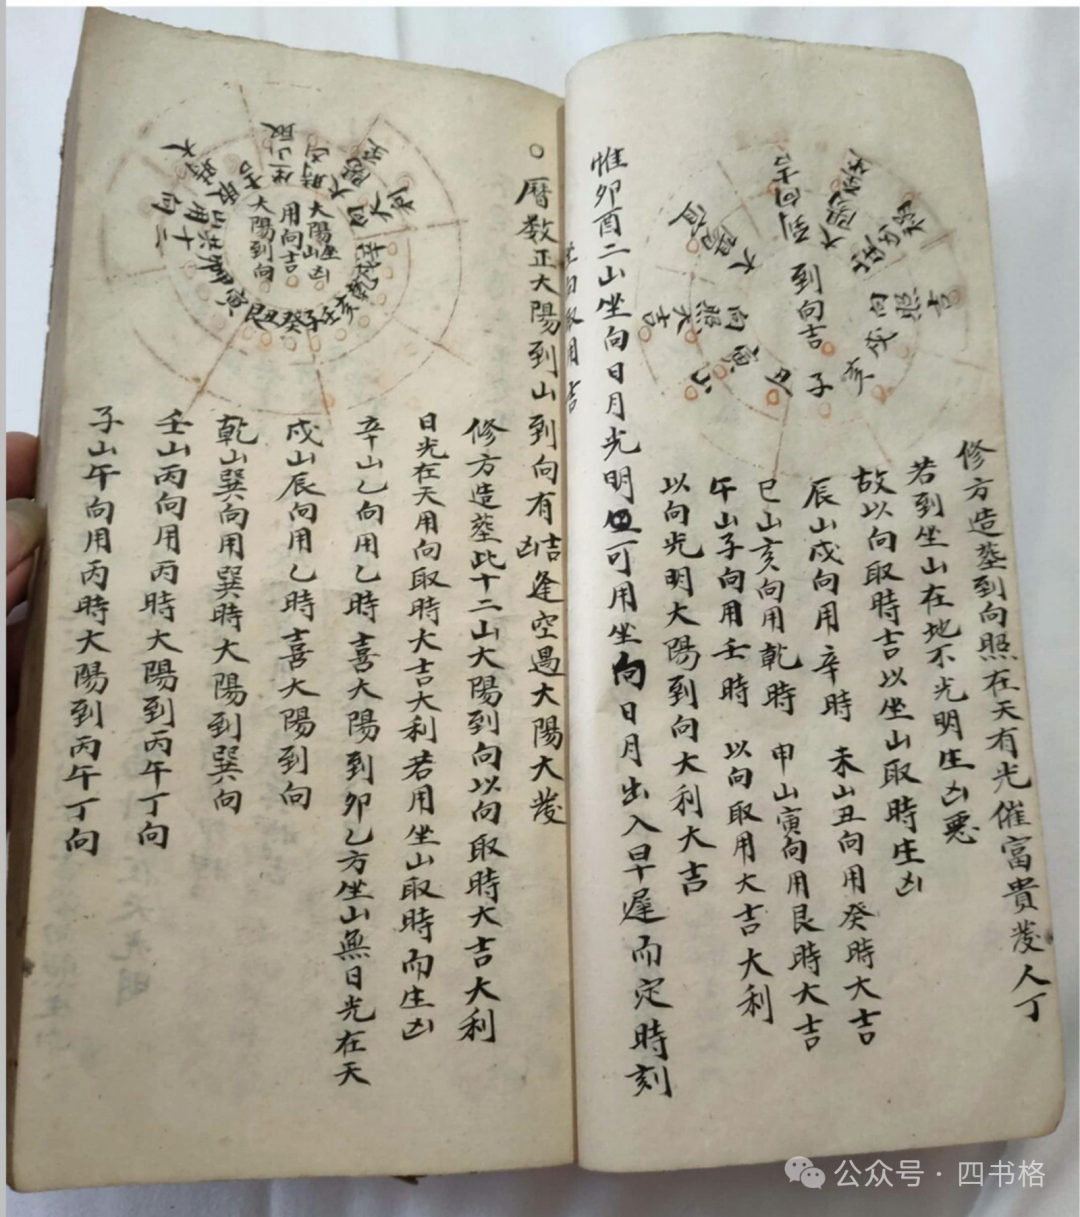 修方造塟到向照在天有光催富貴發人丁
若到坐山在地不光明生凶惡
故以向取時吉以坐山取時生凶
辰山戌向用辛時 未山丑向用癸時大吉
巳山亥向用乾時 申山寅向用艮時大吉
午山子向用壬時 以向取用大吉大利
以向光明大陽到向大利大吉
惟卯酉二山坐向日月光明可用坐向日月出入早遲而定時刻
到向吉
坐向取用吉
○曆数正大陽到山到向有吉凶逢空遇大陽大發
修方造塟此十二山大陽到向以向取時大吉大利
日光在天用向取時大吉大利若用坐山取時而生凶
辛山乙向用乙時喜大陽到卯乙方坐山無日光在天
戌山辰向用乙時喜大陽到向
乾山巽向用巽時大陽到巽向
壬山丙向用丙時大陽到丙午丁向
子山午向用丙時大陽到丙午丁向
大陽坐山凶
用向吉
大陽到向
公众号·四书格